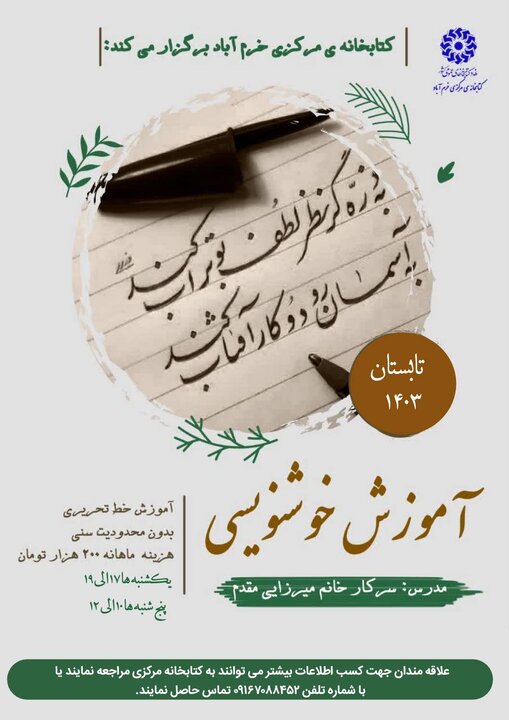 کتابخانه ی مرکزی خرم آباد برگزار می کند:
کتابخانه ی مرکزی خرم آباد
به ذرّه گر نظر لطف بوتراب کند
به آسمان رود و کار آفتاب کند
تابستان
۱۴۰۳
آموزش خوشنویسی
مدرس: سرکار خانم میرزایی مقدم
آموزش خط تحریری
بدون محدودیت سنی
هزینه ماهانه ۲۰۰ هزار تومان
یکشنبه ها ۱۷ الی ۱۹
پنج شنبه ها ۱۰ الی ۱۲
علاقه مندان جهت کسب اطلاعات بیشتر می توانند به کتابخانه مرکزی مراجعه نمایند یا
با شماره تلفن ۰۹۱۶۷۰۸۸۴۵۲ تماس حاصل نمایند.